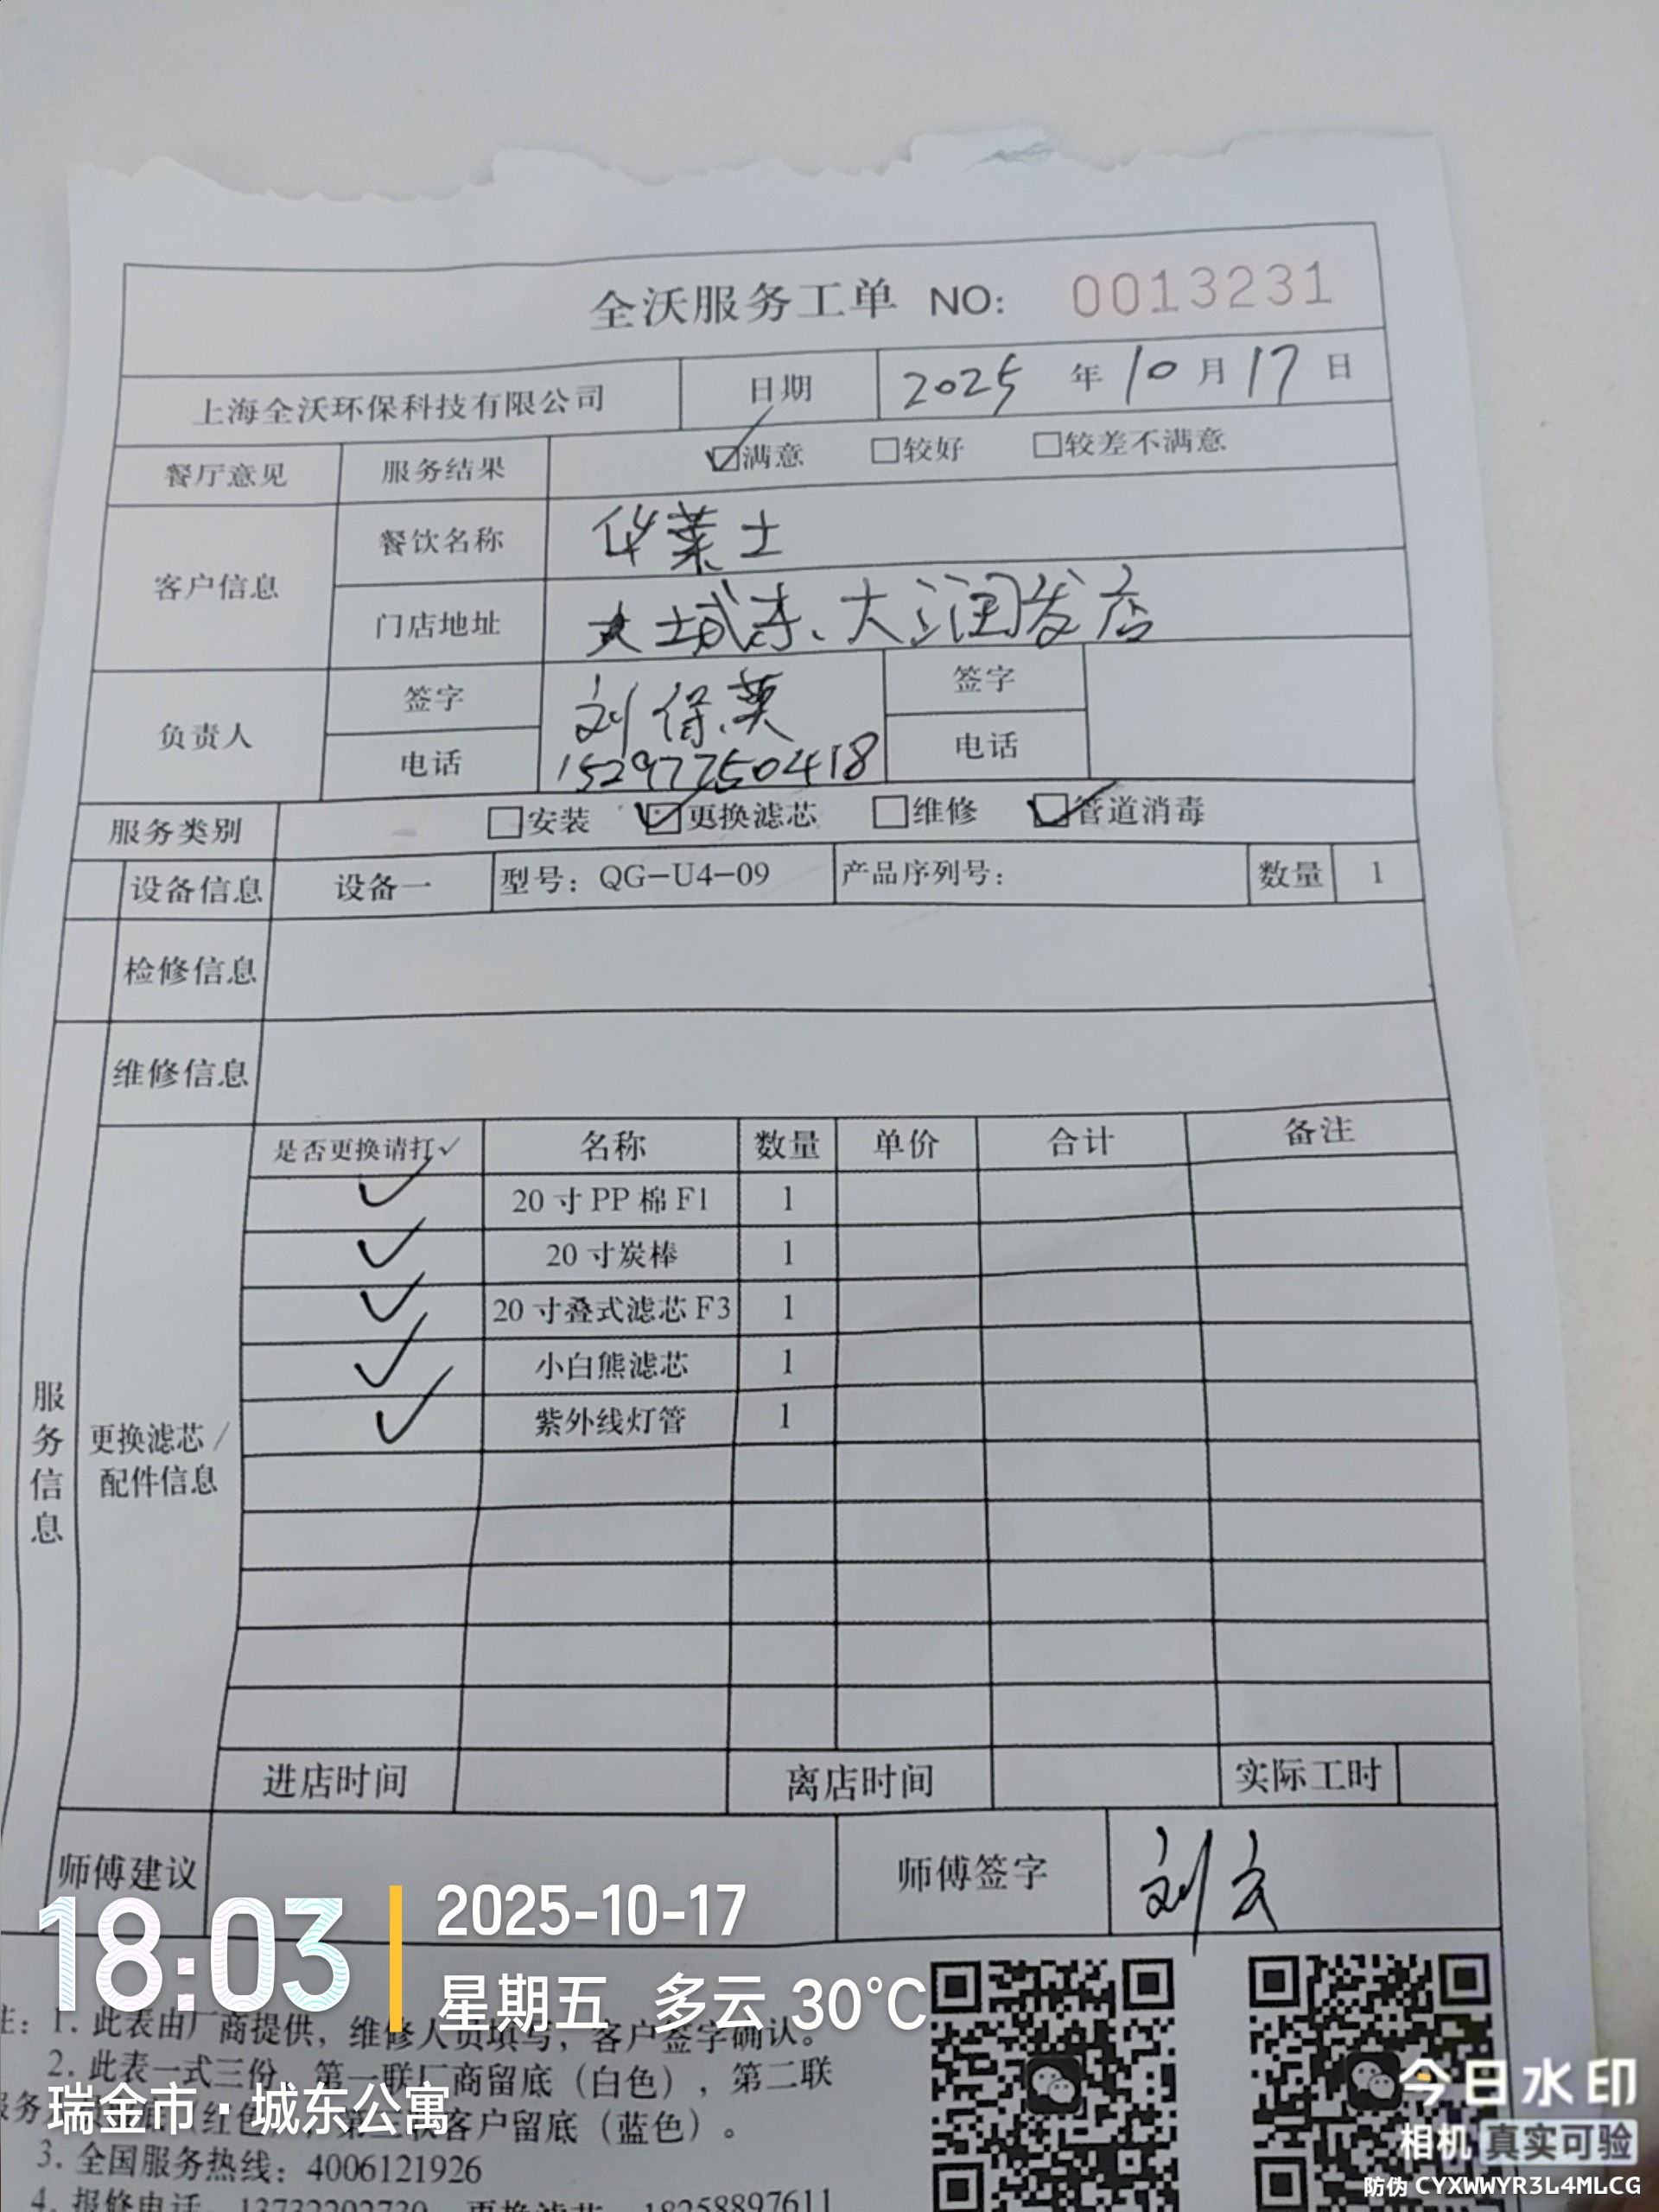 全沃服务工单 NO: 0013231
上海全沃环保科技有限公司 日期 2025 年 10 月 17 日
餐厅意见 服务结果 ☑满意 □较好 □较差不满意
客户信息 餐饮名称 华莱士
门店地址 城东、大润发店
负责人 签字 刘保英 签字
电话 15297750418 电话
服务类别 □安装 ☑更换滤芯 □维修 ☑管道消毒
设备信息 设备一 型号：QG-U4-09 产品序列号： 数量 1
检修信息
维修信息
服务信息
更换滤芯/
配件信息
是否更换请打✓ 名称 数量 单价 合计 备注
✓ 20寸PP棉F1 1
✓ 20寸炭棒 1
✓ 20寸叠式滤芯F3 1
✓ 小白熊滤芯 1
✓ 紫外线灯管 1
进店时间 离店时间 实际工时
师傅建议 师傅签字 刘云
18:03 2025-10-17
星期五 多云 30°C
注：1. 此表由厂商提供，维修人员填写，客户签字确认。
2. 此表一式三份，第一联厂商留底（白色），第二联
服务（红色），第三联客户留底（蓝色）。
瑞金市·城东公寓
3. 全国服务热线：4006121926
4. 报修电话 13732202730 更换滤芯 18258897611
今日水印
相机 真实可验
防伪 CYXWWYR3L4MLCG